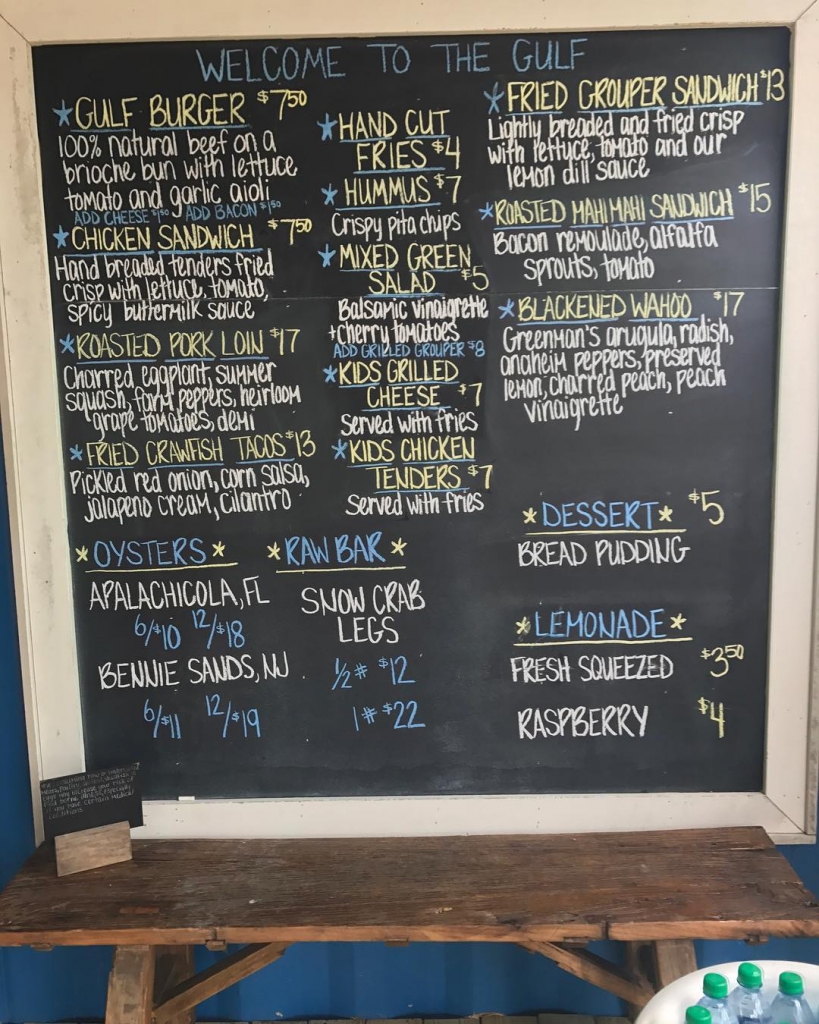 WELCOME TO THE GULF
*GULF BURGER $7.50
100% natural beef on a
brioche bun with lettuce
tomato and garlic aioli
ADD CHEESE $1.50 ADD BACON $1.50
*CHICKEN SANDWICH $7.50
Hand breaded tenders fried
crisp with lettuce, tomato,
spicy buttermilk sauce
*ROASTED PORK LOIN $17
Charred eggplant, summer
squash, farm peppers, heirloom
grape tomatoes, demi
*FRIED CRAWFISH TACOS $13
Pickled red onion, corn salsa,
jalapeno cream, cilantro
*HAND CUT
FRIES $4
*HUMMUS $7
Crispy pita chips
*MIXED GREEN
SALAD $5
Balsamic vinaigrette
+cherry tomatoes
ADD GRILLED GROUPER $8
*KIDS GRILLED
CHEESE $7
Served with fries
*KIDS CHICKEN
TENDERS $7
Served with fries
*FRIED GROUPER SANDWICH $13
Lightly breaded and fried crisp
with lettuce, tomato and our
lemon dill sauce
*ROASTED MAHI MAHI SANDWICH $15
Bacon remoulade, alfalfa
sprouts, tomato
*BLACKENED WAHOO $17
Greenman's arugula, radish,
anaheim peppers, preserved
lemon, charred peach, peach
vinaigrette
*OYSTERS*
APALACHICOLA, FL
6/$10 12/$18
BENNIE SANDS, NJ
6/$11 12/$19
*RAW BAR*
SNOW CRAB
LEGS
1/2# $12
1# $22
*DESSERT* $5
BREAD PUDDING
*LEMONADE*
FRESH SQUEEZED $3.50
RASPBERRY $4